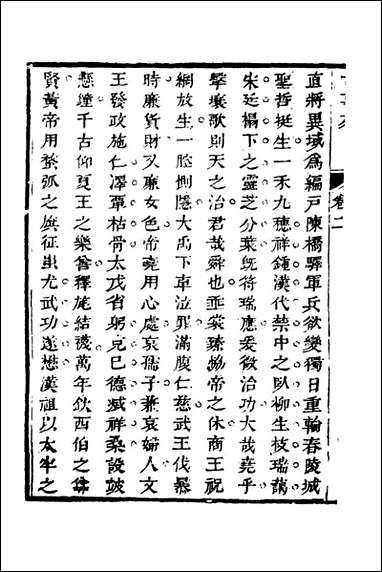 卷二
直將異域爲編戶陳橋驛軍兵欲變獨日重輪舂陵城
聖哲挺生一禾九穗祥鍾漢代禁中之臥柳生枝瑞藹
宋廷榻下之靈芝分葉旣符瑞應爰徵治功大哉堯乎
擊壤歌則天之治君哉舜也垂裳臻協帝之休商王祝
網放生一腔惻隱大禹下車泣罪滿腹仁慈武王伐暴
時廉貨財又廉女色帝堯用心處哀孺子兼哀婦人文
王發政施仁澤覃枯骨太戊省躬克已德滅祥桑設鼓
懸鐘千古仰夏王之樂善釋旄結襪萬年欽西伯之尊
賢黃帝用蝥弧之旗征蚩尤武功遂懋漢祖以太牢之